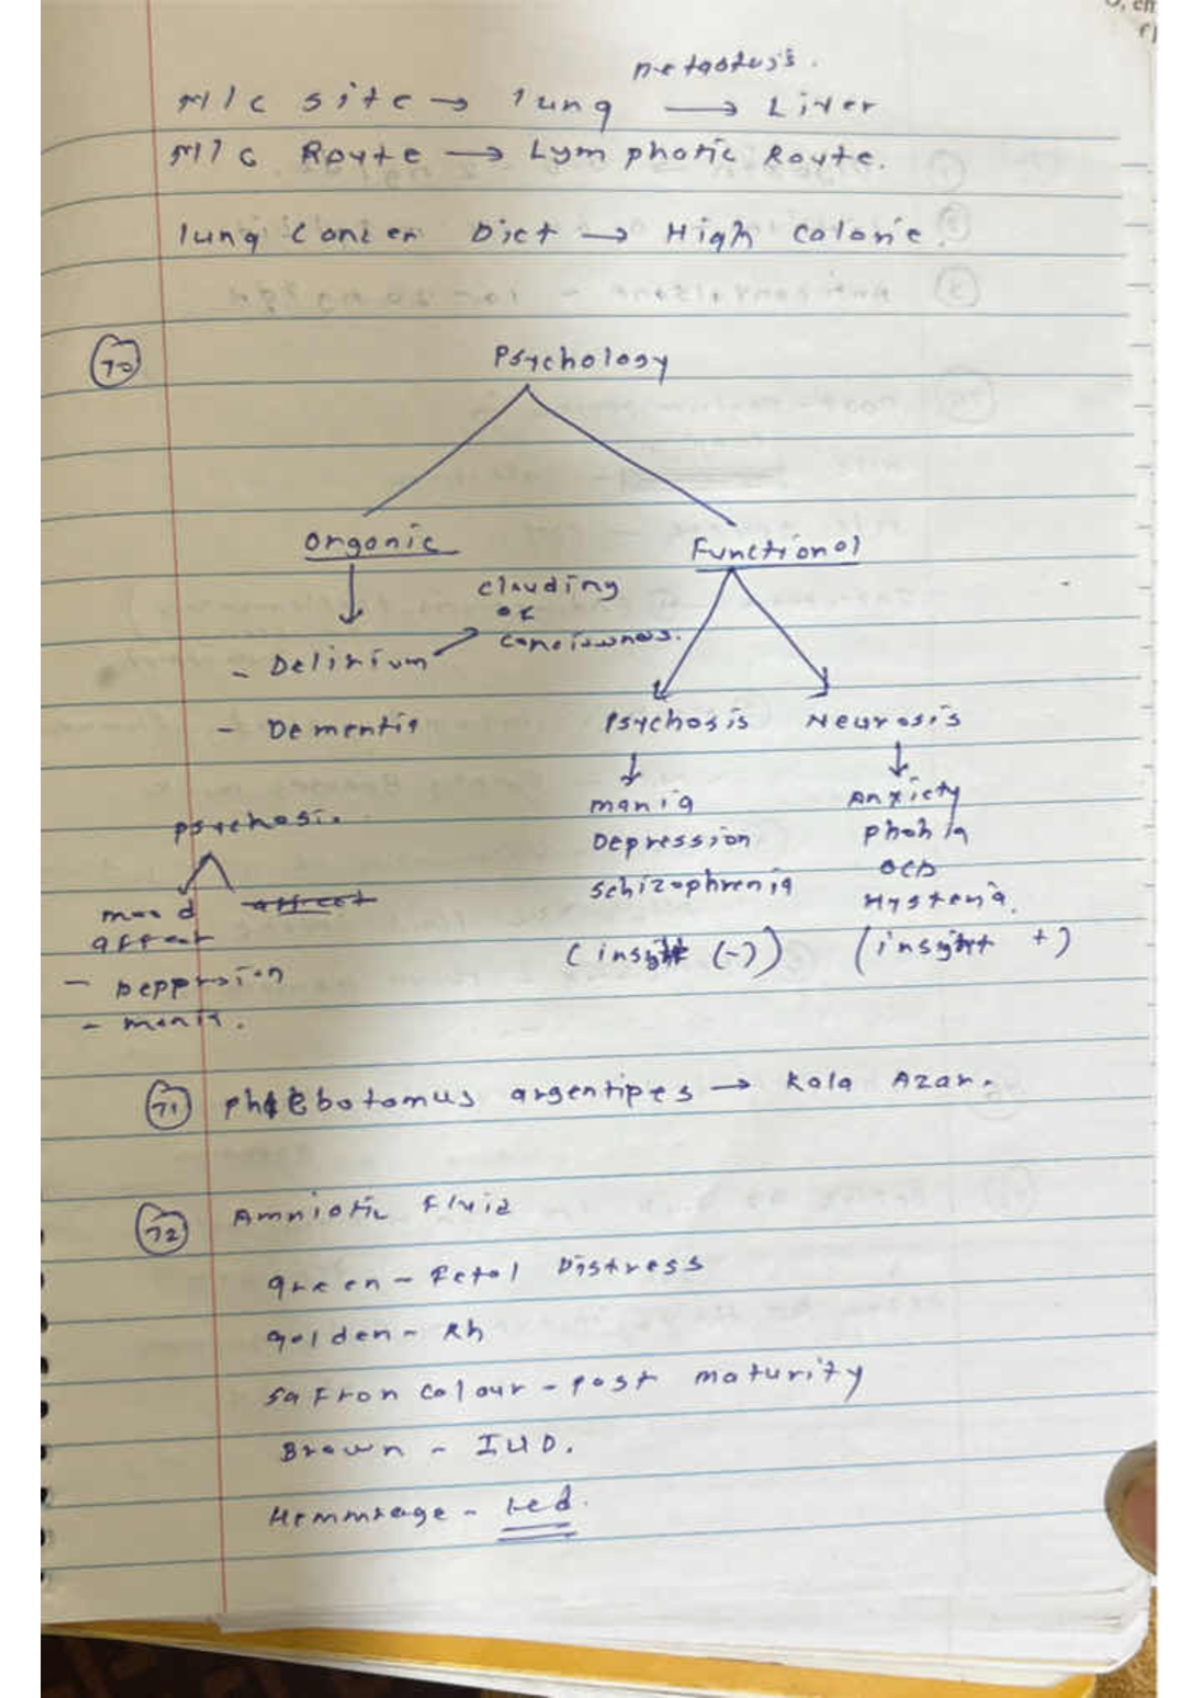 metastasis.
M/c site → lung → Liver
M/c Route → Lymphatic Route.
lung Cancer Diet → High Calorie.
70
Psychology
Organic
Functional
clouding
of
conciousness.
- Delirium
- Dementia
Psychosis Neurosis
mania
Depression
schizophrenia
(insight (-))
Anxiety
phobia
OCD
Hysteria.
(insight +)
psychosis.
mood
affect
affect
- Deppression
- mania.
71 phlebotomus argentipes → Kala Azar.
72 Amniotic Fluid
green - Fetal Distress
golden - Rh
Saffron Colour - post maturity
Brown - IUD.
Hemmrage - red.